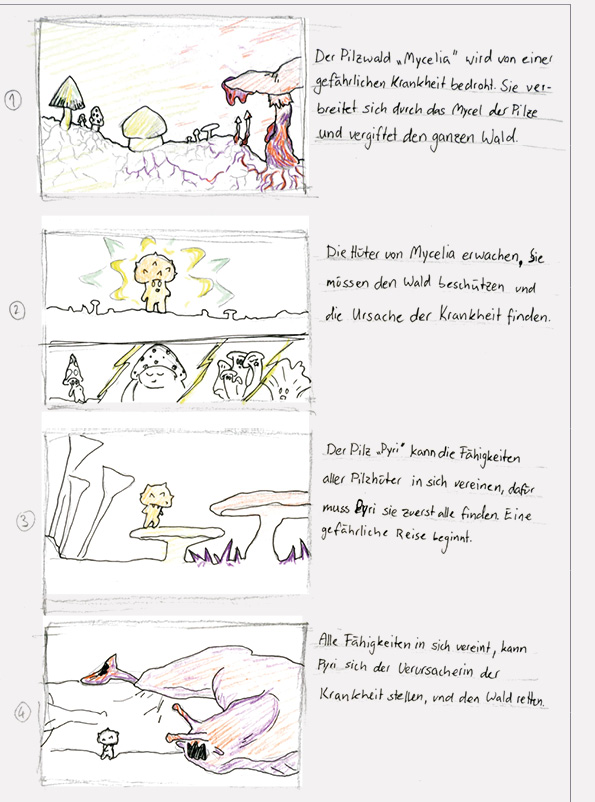 1
Der Pilzwald „Mycelia" wird von einer
gefährlichen Krankheit bedroht. Sie ver-
breitet sich durch das Mycel der Pilze
und vergiftet den ganzen Wald.
2
Die Hüter von Mycelia erwachen, Sie
müssen den Wald beschützen und
die Ursache der Krankheit finden.
3
Der Pilz „Pyri" kann die Fähigkeiten
aller Pilzhüter in sich vereinen, dafür
muss Pyri sie zuerst alle finden. Eine
gefährliche Reise beginnt.
4
Alle Fähigkeiten in sich vereint, kann
Pyri sich der Verursacherin der
Krankheit stellen, und den Wald retten.